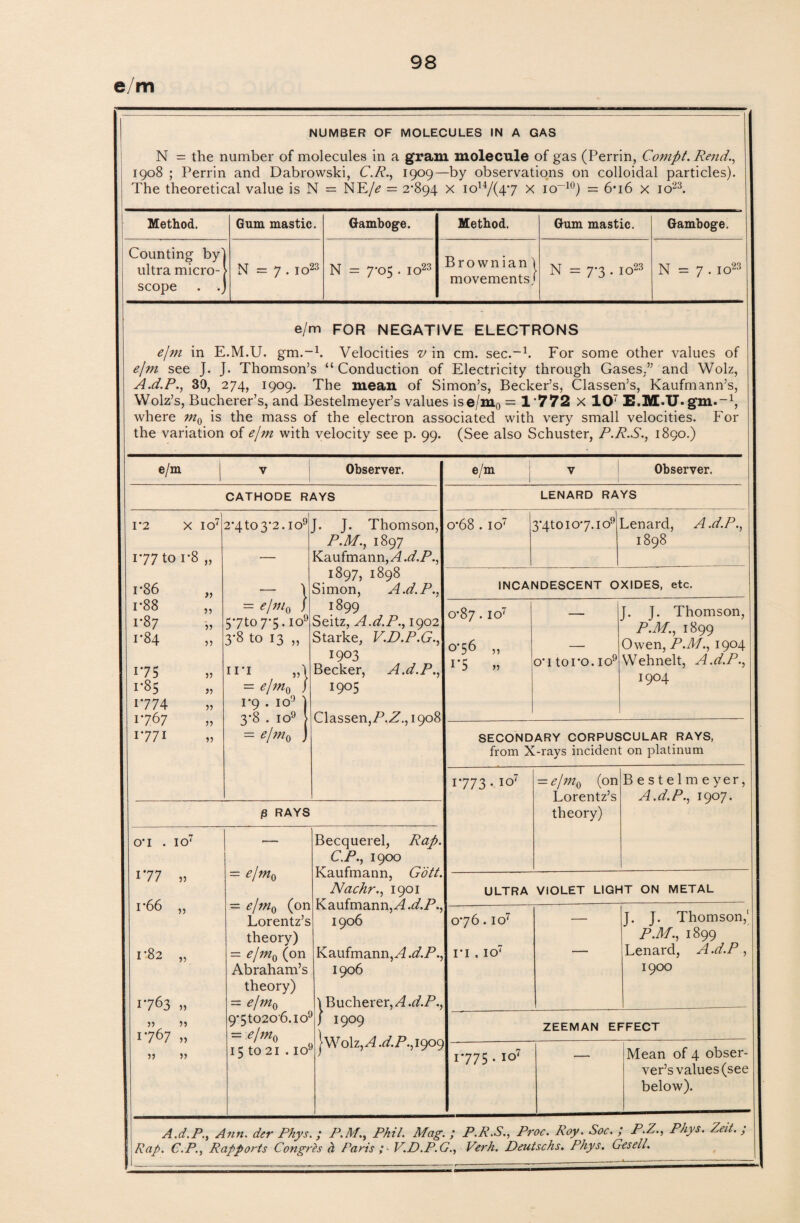 98
e/m
NUMBER OF MOLECULES IN A GAS
N = the number of molecules in a gram molecule of gas (Perrin, Compt. Rend.,
1908 ; Perrin and Dabrowski, C.R., 1909—by observations on colloidal particles).
The theoretical value is N = NE/e = 2·894 × 10¹⁴/(4·7 × 10⁻¹⁰) = 6·16 × 10²³.
Method. Gum mastic. Gamboge. Method. Gum mastic. Gamboge.
Counting by
ultra micro-
scope . .} N = 7 . 10²³ N = 7·05 . 10²³ Brownian
movements} N = 7·3 . 10²³ N = 7 . 10²³
e/m FOR NEGATIVE ELECTRONS
e/m in E.M.U. gm.⁻¹. Velocities v in cm. sec.⁻¹. For some other values of
e/m see J. J. Thomson's “Conduction of Electricity through Gases,” and Wolz,
A.d.P., 30, 274, 1909. The mean of Simon's, Becker's, Classen's, Kaufmann's,
Wolz's, Bucherer's, and Bestelmeyer's values is e/m₀ = 1·772 × 10⁷ E.M.U. gm.⁻¹,
where m₀ is the mass of the electron associated with very small velocities. For
the variation of e/m with velocity see p. 99. (See also Schuster, P.R.S., 1890.)
e/m v Observer.
CATHODE RAYS
1·2 × 10⁷ 2·4 to 3·2 . 10⁹ J. J. Thomson,
P.M., 1897
1·77 to 1·8 „ — Kaufmann, A.d.P.,
1897, 1898
1·86 „ — } Simon, A.d.P.,
1·88 „ = e/m₀ } 1899
1·87 „ 5·7 to 7·5 . 10⁹ Seitz, A.d.P., 1902
1·84 „ 3·8 to 13 „ Starke, V.D.P.G.,
1903
1·75 „ 11·1 „ } Becker, A.d.P.,
1·85 „ = e/m₀ } 1905
1·774 „ 1·9 . 10⁹ }
1·767 „ 3·8 . 10⁹ } Classen, P.Z., 1908
1·771 „ = e/m₀ }
β RAYS
0·1 . 10⁷ — Becquerel, Rap.
C.P., 1900
1·77 „ = e/m₀ Kaufmann, Gött.
Nachr., 1901
1·66 „ = e/m₀ (on Kaufmann, A.d.P.,
Lorentz's 1906
theory)
1·82 „ = e/m₀ (on Kaufmann, A.d.P.,
Abraham's 1906
theory)
1·763 „ = e/m₀ } Bucherer, A.d.P.,
„ „ 9·5 to 20·6 . 10⁹ } 1909
1·767 „ = e/m₀ } Wolz, A.d.P., 1909
„ „ 15 to 21 . 10⁹ }
e/m v Observer.
LENARD RAYS
0·68 . 10⁷ 3·4 to 10·7 . 10⁹ Lenard, A.d.P.,
1898
INCANDESCENT OXIDES, etc.
0·87 . 10⁷ — J. J. Thomson,
P.M., 1899
0·56 „ — Owen, P.M., 1904
1·5 „ 0·1 to 1·0 . 10⁹ Wehnelt, A.d.P.,
1904
SECONDARY CORPUSCULAR RAYS,
from X-rays incident on platinum
1·773 . 10⁷ = e/m₀ (on Bestelmeyer,
Lorentz's A.d.P., 1907.
theory)
ULTRA VIOLET LIGHT ON METAL
0·76 . 10⁷ — J. J. Thomson,
P.M., 1899
1·1 . 10⁷ — Lenard, A.d.P ,
1900
ZEEMAN EFFECT
1·775 . 10⁷ — Mean of 4 obser-
ver's values (see
below).
A.d.P., Ann. der Phys. ; P.M., Phil. Mag. ; P.R.S., Proc. Roy. Soc. ; P.Z., Phys. Zeit. ;
Rap. C.P., Rapports Congrès à Paris ; V.D.P.G., Verh. Deutschs. Phys. Gesell.